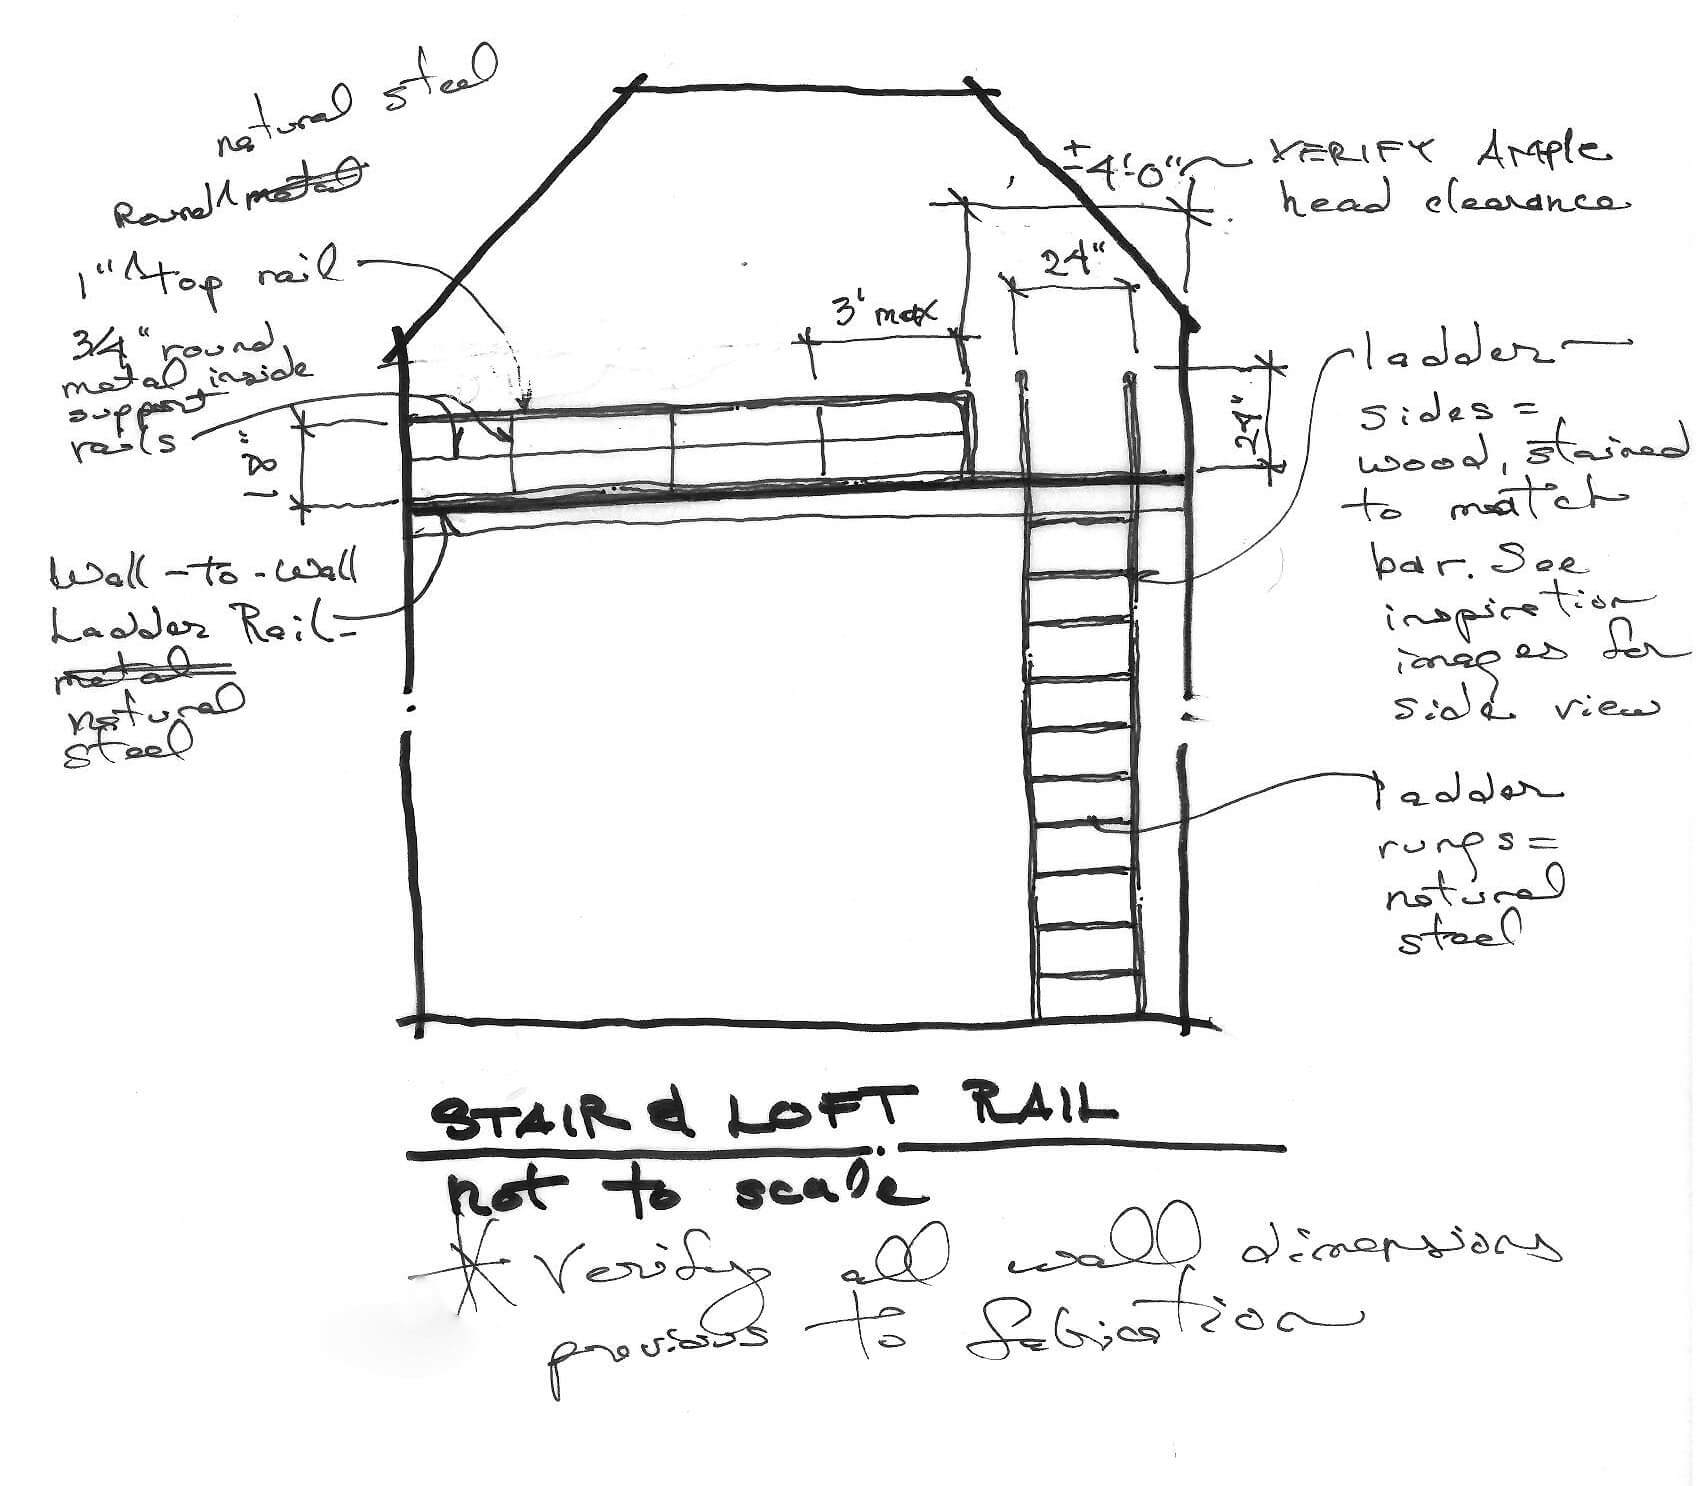 natural steel
Round ^ metal
1" ^ top rail
3/4" round
metal inside
support
rails
18"
Wall-to-Wall
Ladder Rail-
metal
natural
steel
±4'-0"
VERIFY Ample
head clearance
24"
3' max
24"
ladder
sides =
wood, stained
to match
bar. See
inspiration
images for
side view
ladder
rungs =
natural
steel
STAIR & LOFT RAIL
not to scale
* Verify all wall dimensions
previous to fabrication